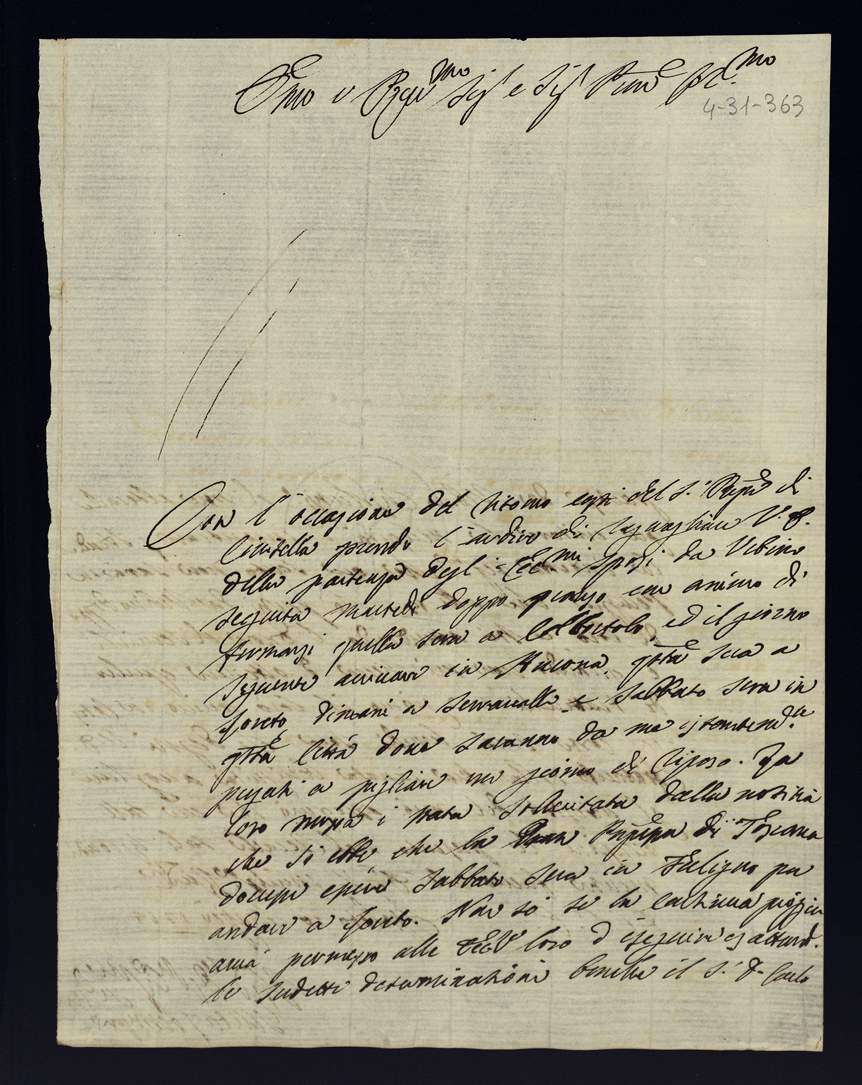 Em̃o e Rev.mo Sig.r e Sig.r Pron̄e
4-31-363
Con l'occasione del ritorno costì del S.r di
Civitella prendo l'ardire di ragguagliare V. E.
della partenza degl' Ecc.mi Sposi da Urbino
seguita martedì doppo pranzo con animo di
fermarsi quella sera a ed il giorno
seguente arrivare in Ancona, q̃sta sera a
Loreto, dimani a Serravalle e Sabbato sera in
q̃sta Città dove saranno da me
pregati a pigliare un giorno di riposo. La
loro mossa è stata sollecitata dalla notizia
che si ebbe che la Gran Prñpesa di Toscana
dovesse essere Sabbato sera in Fuligno per
andare a Loreto. Non sò se la cattiva pioggia
avrà permesso alle EE. Loro d'eseguire
le sudette determinazioni benche il S.r D. Carlo